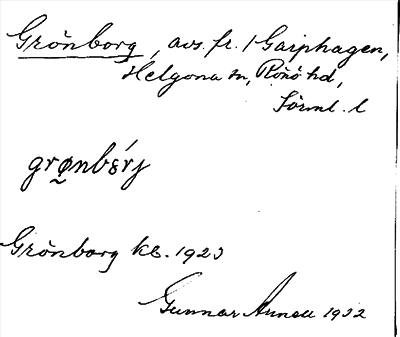 Grönborg, avs. fr. 1 Garphagen,
Helgona sn, Rönö hd,
Sörml. l
Grönborg kb. 1923
Gunnar 1932